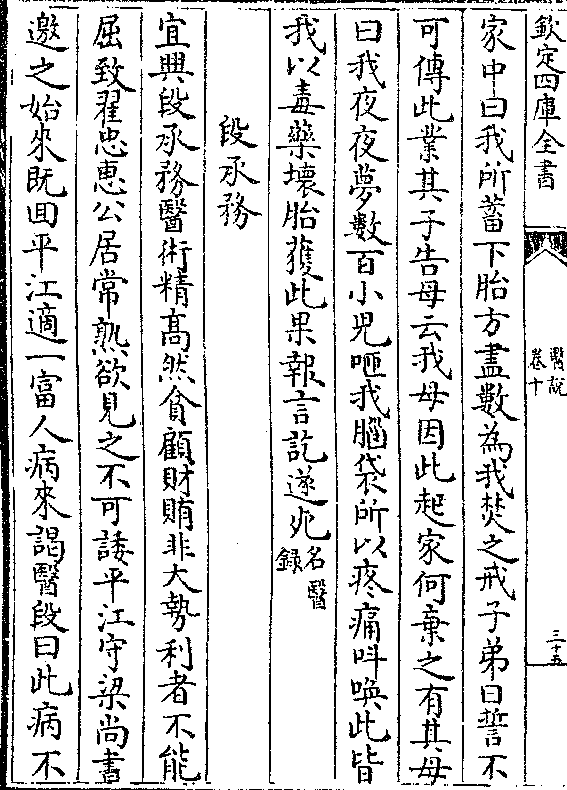 欽定四庫全書
醫說
卷十
三十五
家中曰我所蓄下胎方盡數為我焚之戒子弟曰誓不
可傳此業其子告母云我母因此起家何棄之有其母
曰我夜夜夢數百小兒咂我腦袋所以疼痛呌喚此皆
我以毒藥壞胎獲此果報言訖遂死名醫
録
段承務
宜興段承務醫術精髙然貪顧財賄非大勢利者不能
屈致翟忠惠公居常熟欲見之不可諉平江守梁尚書
邀之始來既回平江適一富人病來謁醫段曰此病不